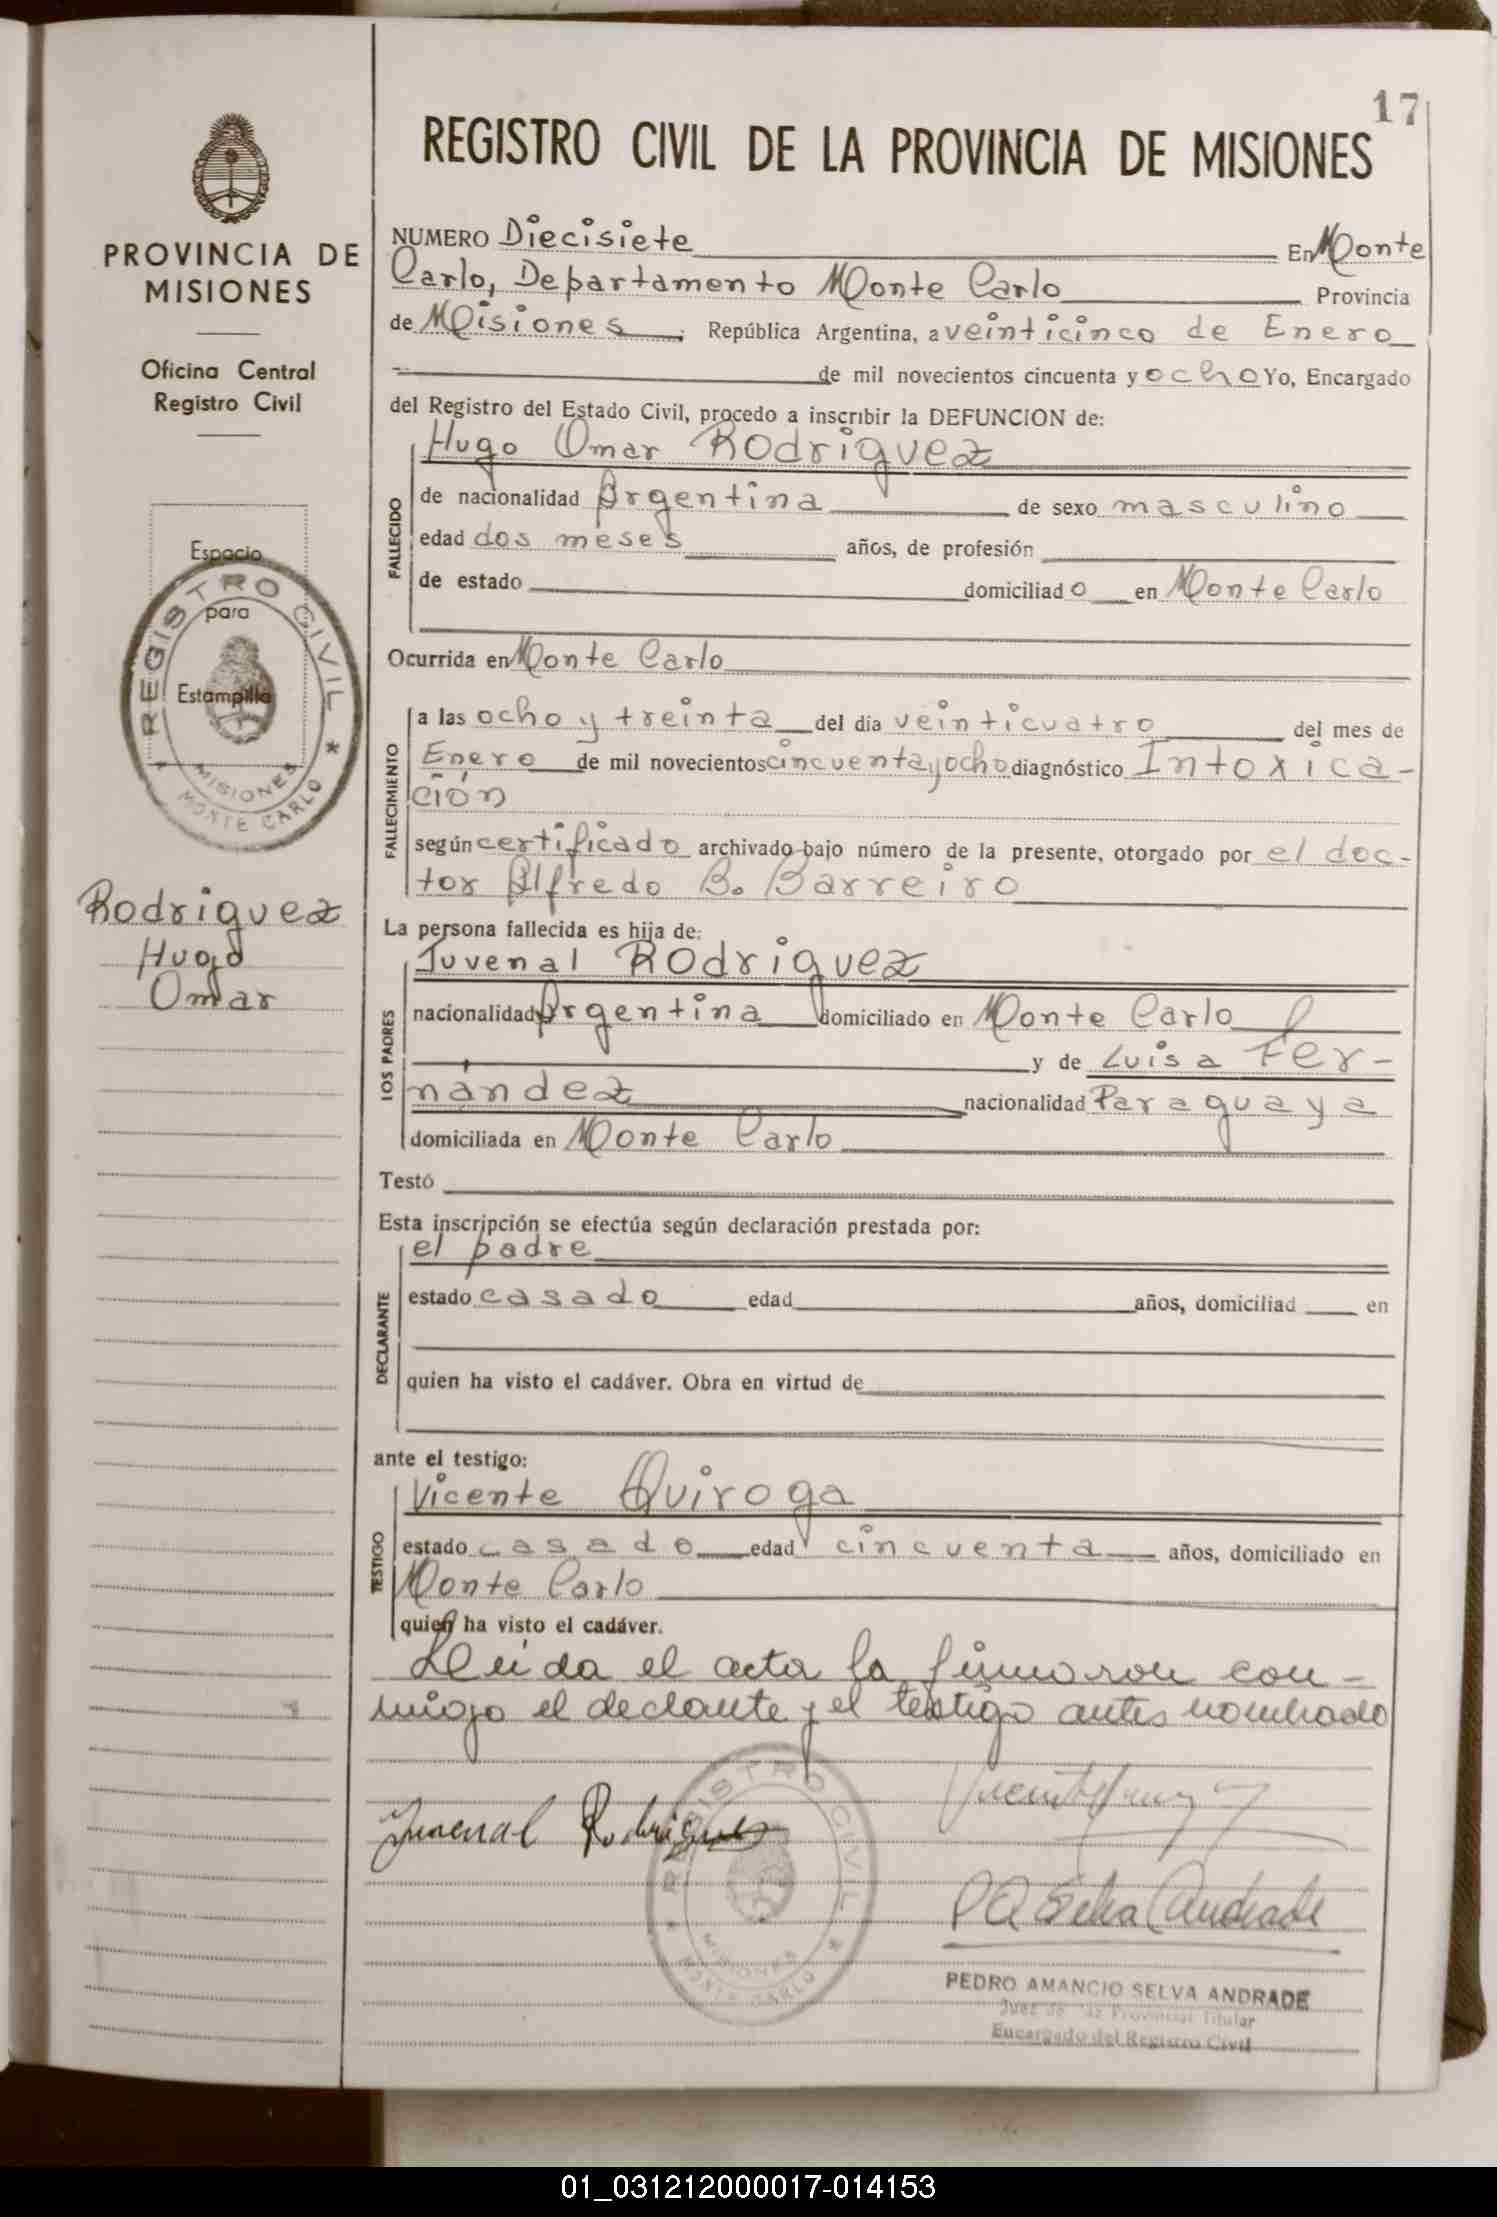 17
REGISTRO CIVIL DE LA PROVINCIA DE MISIONES
PROVINCIA DE
MISIONES
Oficina Central
Registro Civil
Espacio
para
Estampilla
REGISTRO CIVIL
MISIONES
MONTE CARLO
Rodriguez
Hugo
Omar
NUMERO Diecisiete En Monte
Carlo, Departamento Monte Carlo Provincia
de Misiones. República Argentina, a veinticinco de Enero
de mil novecientos cincuenta y ocho Yo, Encargado
del Registro del Estado Civil, procedo a inscribir la DEFUNCION de:
FALLECIDO
Hugo Omar Rodriguez
de nacionalidad Argentina de sexo masculino
edad dos meses años, de profesión
de estado domiciliado en Monte Carlo
Ocurrida en Monte Carlo
FALLECIMIENTO
a las ocho y treinta del día veinticuatro del mes de
Enero de mil novecientos cincuenta y ocho diagnóstico Intoxica-
ción
según certificado archivado bajo número de la presente, otorgado por el doc-
tor Alfredo B. Barreiro
La persona fallecida es hija de:
LOS PADRES
Juvenal Rodriguez
nacionalidad Argentina domiciliado en Monte Carlo
y de Luisa Fer-
nández nacionalidad Paraguaya
domiciliada en Monte Carlo
Testó
Esta inscripción se efectúa según declaración prestada por:
DECLARANTE
el padre
estado casado edad años, domiciliad en
quien ha visto el cadáver. Obra en virtud de
ante el testigo:
TESTIGO
Vicente Quiroga
estado casado edad cincuenta años, domiciliado en
Monte Carlo
quien ha visto el cadáver.
Leída el acta la firmaron con-
migo el declante y el testigo antes nombrado
Juvenal Rodrigues
REGISTRO CIVIL
MISIONES
MONTE CARLO
P A Selva Andrade
PEDRO AMANCIO SELVA ANDRADE
Juez de Paz Provincial Titular
Encargado del Registro Civil
01_031212000017-014153